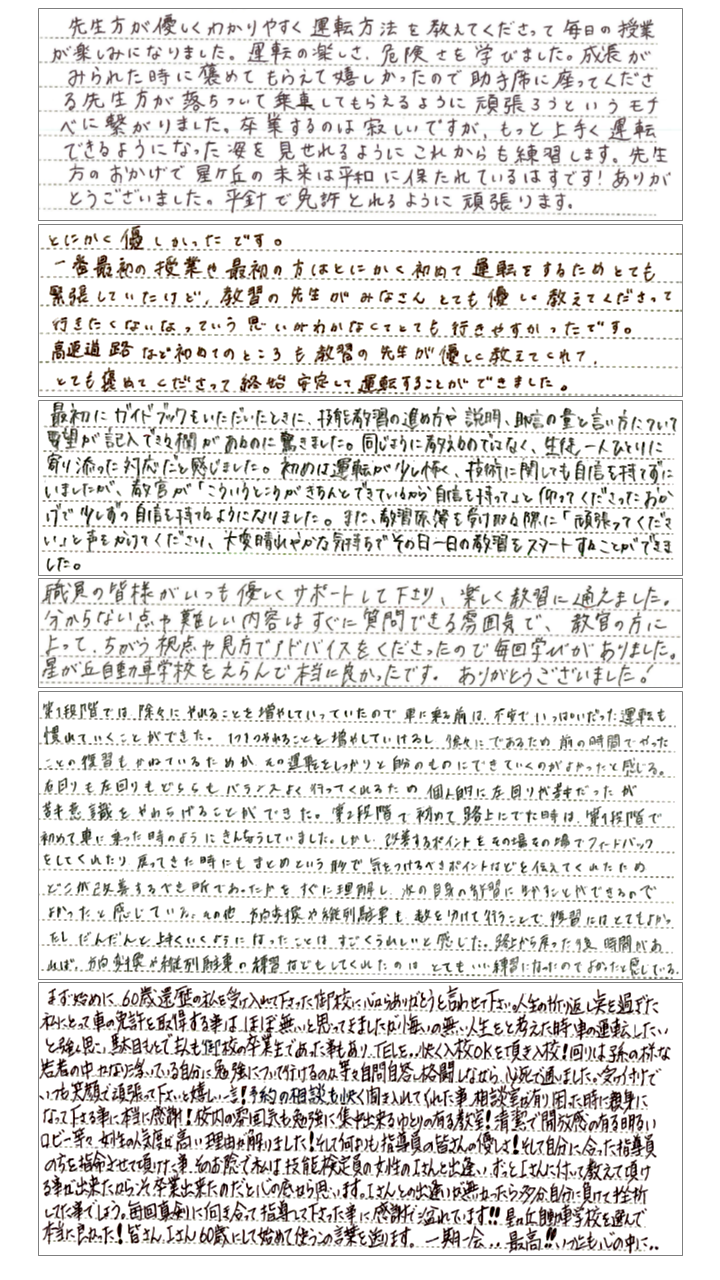 先生方が優しくわかりやすく運転方法を教えてくださって毎日の授業
が楽しみになりました。運転の楽しさ、危険さを学びました。成長が
みられた時に褒めてもらえて嬉しかったので助手席に座ってくださ
る先生方が落ちついて乗車してもらえるように頑張ろうというモチ
ベに繋がりました。卒業するのは寂しいですが、もっと上手く運転
できるようになった姿を見せれるようにこれからも練習します。先生
方のおかげで星ヶ丘の未来は平和に保たれているはずです!ありが
とうございました。平針で免許とれるように頑張ります。
とにかく優しかったです。
一番最初の授業や最初の方はとにかく初めて運転をするためとても
緊張していたけど、教習の先生がみなさんとても優しく教えてくださって
行きたくないなっていう思いがわかなくてとても行きやすかったです。
高速道路など初めてのところも教習の先生が優しく教えてくれて、
とても褒めてくださって終始安定して運転することができました。
最初にガイドブックをいただいたときに、技能教習の進め方や説明、助言の量と言い方について
要望が記入できる欄があるのに驚きました。同じように教えるのではなく、生徒一人ひとりに
寄り添った対応だと感じました。初めは運転が少し怖く、技術に関しても自信を持てずに
いましたが、教官が「こういうところがきちんとできているから自信を持って」と仰ってくださったおか
げで少しずつ自信を持てるようになりました。また、教習原簿を受け取る際に「頑張ってくださ
い」と声をかけてくださり、大変晴れやかな気持ちでその日一日の教習をスタートすることができま
した。
職員の皆様がいつも優しくサポートして下さり、楽しく教習に通えました。
分からない点や難しい内容はすぐに質問できる雰囲気で、教官の方に
よって、ちがう視点や見方でアドバイスをくださったので毎回学びがありました。
星が丘自動車学校をえらんで本当に良かったです。ありがとうございました!
第1段階では、除々にやれることを増やしていっていたので車に乗る前は、不安でいっぱいだった運転も
慣れていくことができた。1つ1つやれることを増やしていけるし、徐々にであるため前の時間でやった
ことの復習もかねているためか、その運転をしっかりと自分のものにできていくのがよかったと感じる。
右回りも左回りもどちらもバランスよく行ってくれるため個人的に左回りが苦手だったが
苦手意識をやわらげることができた。第2段階で初めて路上にでた時は、第1段階で
初めて車に乗った時のようにきんちょうしていました。しかし、改善するポイントをその場その場でフィードバック
をしてくれたり、戻ってきた時にもまとめという形で気をつけるべきポイントなどを伝えてくれたため
どこが改善するべき所であったかをすぐに理解し、次の自身の教習に生かすことができるので
よかったと感じている。その他、方向変換や縦列駐車も数を分けて行うことで、復習にはとてもよかっ
たし、だんだんと上手くいくようになったことはすごくうれしいと感じた。路上から戻った後、時間があ
れば、方向変換や縦列駐車の練習などもしてくれたのはとてもいい練習になったのでよかったと感じている。
まず始めに、60歳還暦の私を受け入れて下さった御校に心からありがとうと言わせて下さい。人生の折り返し点を過ぎた
私にとって車の免許を取得する事は、ほぼ無いと思ってましたが悔いの無い人生をと考えた時、車の運転したい
と強く思い、駄目もとで友人も御校の卒業生であった事もあり、TELを。快く入校OKを頂き入校!回りは孫の様な
若者の中、かなり浮いている自分に勉強について行けるのか等々自問自答し格闘しながら、必死で通いました。受付けで
いつも笑顔で頑張って下さいと嬉しい一言!予約の相談も快く聞き入れてくれた事、相談室が有り困った時に親身に
なって下さる事に本当に感謝!校内の雰囲気も勉強に集中出来るゆとりの有る教室!清潔で開放感の有る明るい
ロビー等々、女性の人気度が高い理由が解りました!そして何よりも指導員の皆さんの優しさ!そして自分に合った指導員
の方を指命させて頂けた事、そのお陰で私は技能検定員の女性のIさんと出逢い、ずっとIさんに付いて教えて頂け
る事が出来たからこそ卒業出来たのだと心の底から思います。Iさんとの出逢いが無かったら多分自分に負けて挫折
してた事でしょう。毎回真剣に向き合って指導して下さった事に感謝が溢れています!!星が丘自動車学校を選んで
本当に良かった!皆さん、Iさん60歳にして始めて使うこの言葉を送ります。一期一会、、最高!!いつも心の中に、、